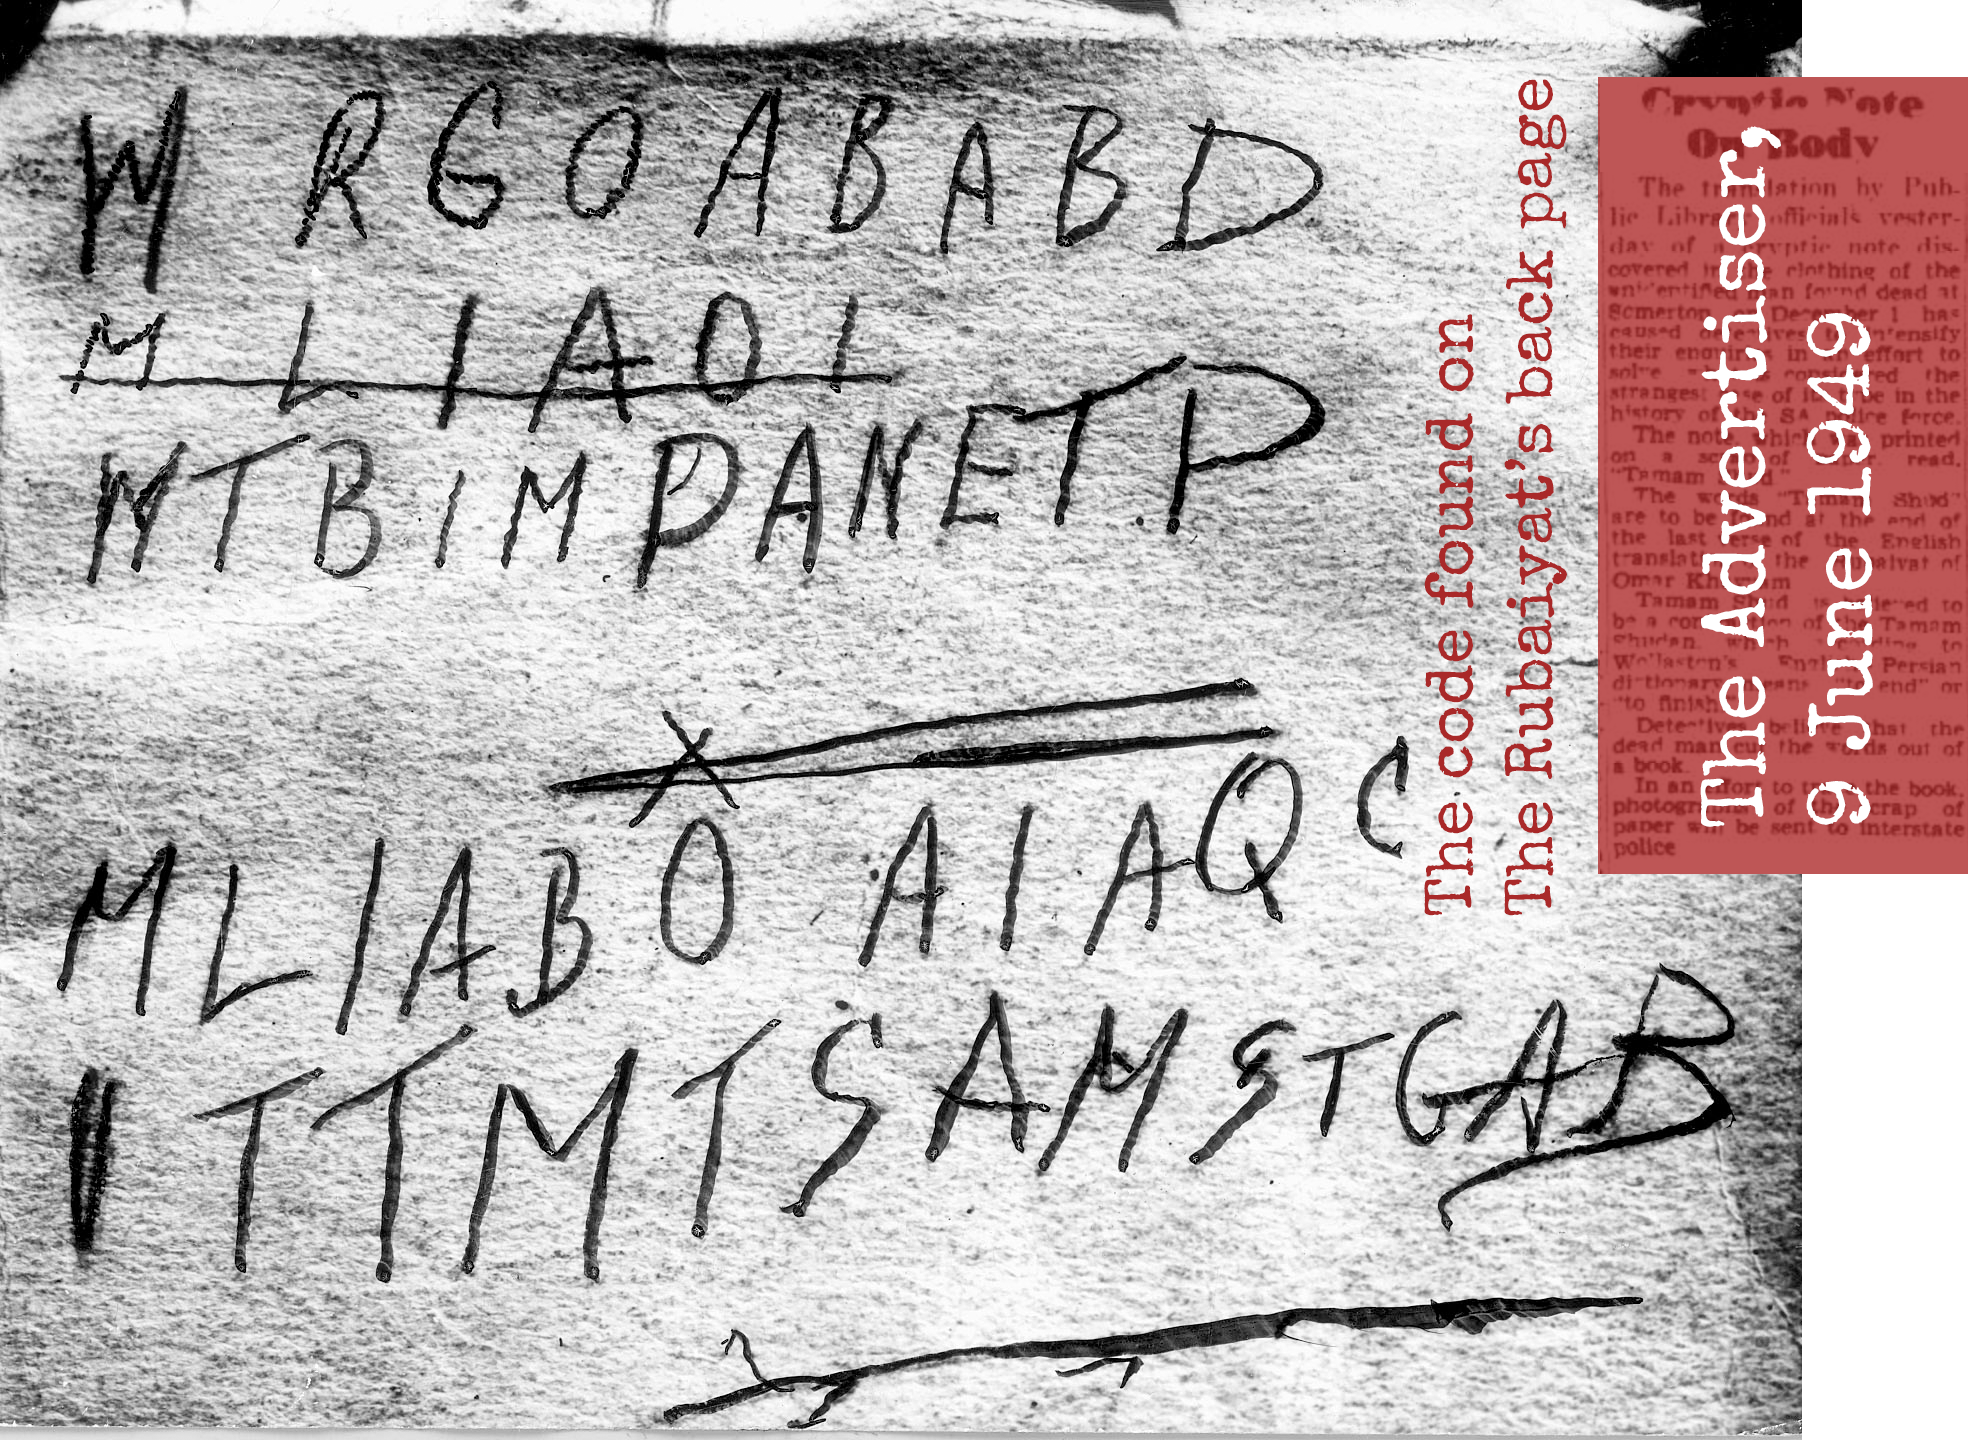 W RGOABABD
M L I A O I
WTBIMPANETP
X
MLIABO AIAQC
ITTMTSAMSTGAB
The code found on
The Rubaiyat's back page
The Advertiser,
9 June 1949
Cryptic Note
On Body
The translation by Pub-
lic Library officials yester-
day of a cryptic note dis-
covered in the clothing of the
unidentified man found dead at
Somerton on December 1 has
caused detectives to intensify
their enquiries in an effort to
solve considered the
strangest case of its in the
history of the SA police force.
The note, which was printed
on a scrap of read,
"Tamam Shud"
The words "Tamam Shud"
are to be found at the end of
the last verse of the English
translation of the Rubaiyat of
Omar Khayyam
Tamam Shud is believed to
be a contraction of the Tamam
Shudan, which according to
Wollaston's English Persian
dictionary means "to end" or
"to finish"
Detectives believe that the
dead man cut the words out of
a book
In an effort to trace the book,
photographs of the scrap of
paper will be sent to interstate
police